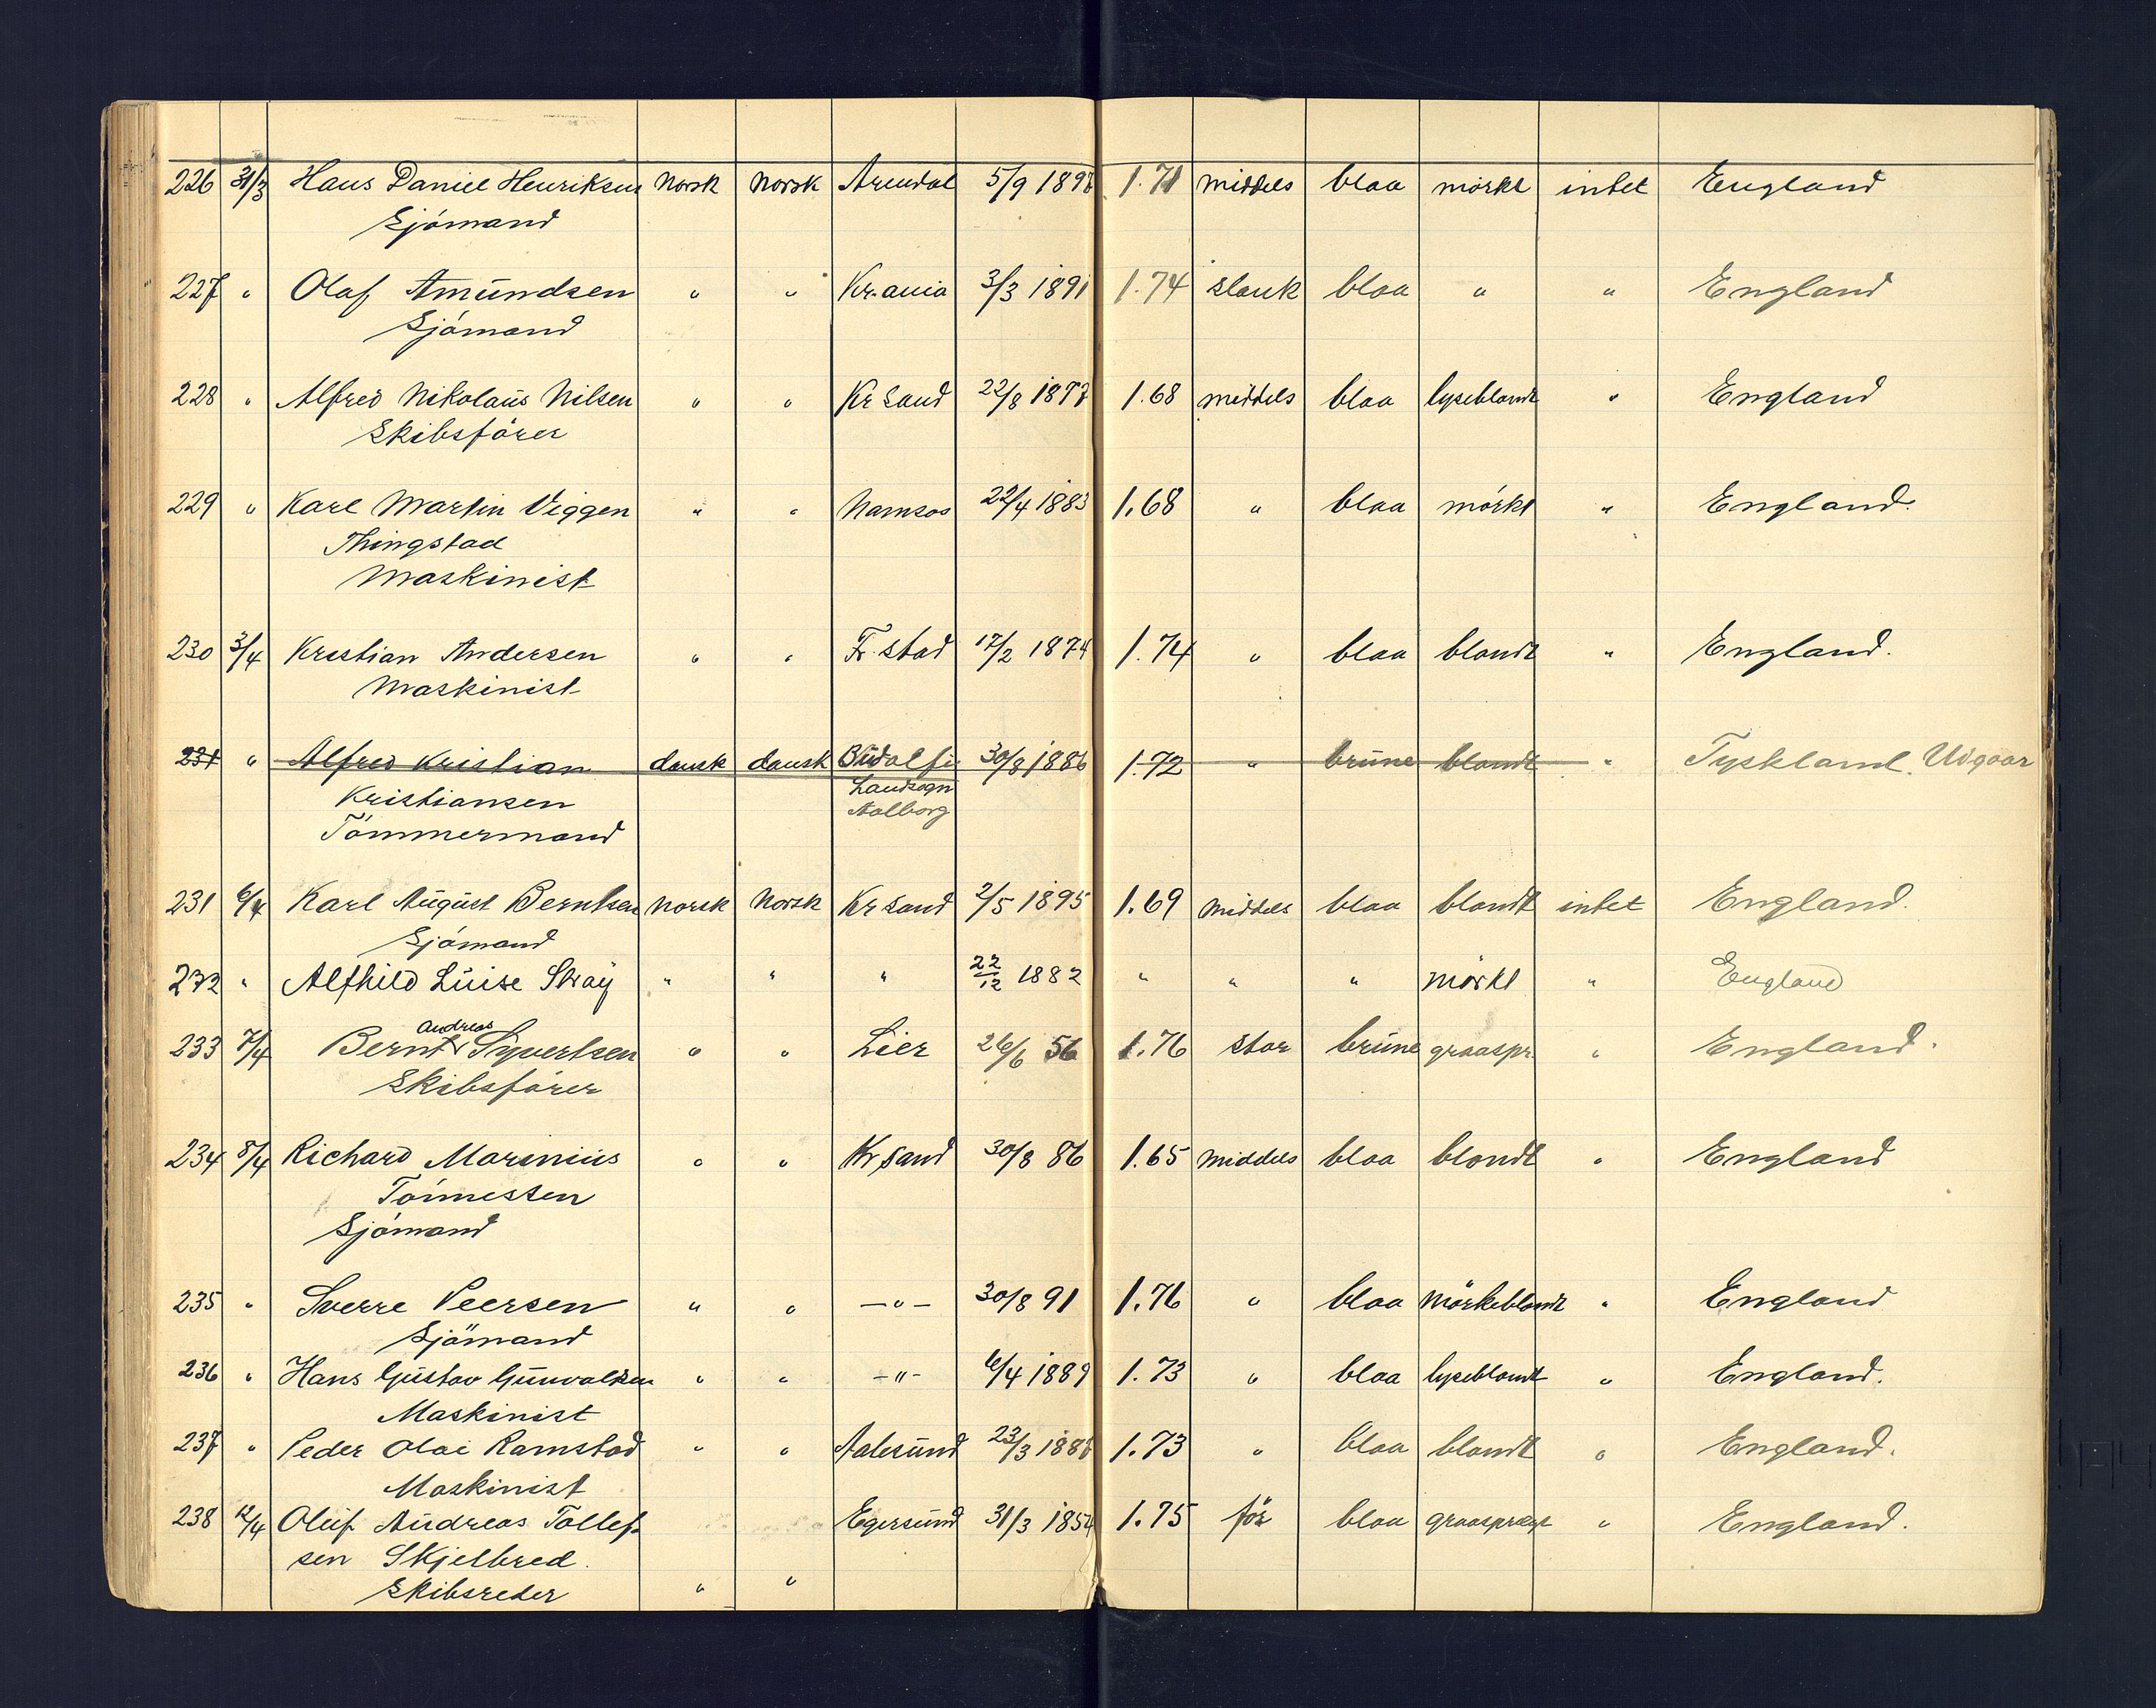 226 31/3 Hans Daniel Henriksen norsk norsk Arendal 5/9 1897 1.71 middels blaa mörkt intet England
Sjómand
227 " Olaf Amundsen " " Kr.ania 3/3 1891 1.74 slank blaa " " England
Sjómand
228 " Alfred Nikolaus Nilsen " " Kr Sand 22/8 1877 1.68 middels blaa lyseblondt " England
Skibsförer
229 " Karl Martin Viggen " " Namsos 22/4 1883 1.68 " blaa mórkt " England.
Thingstad
Maskinist
230 3/4 Kristian Andersen " " Fr. stad 17/2 1874 1.74 " blaa blondt " England.
Maskinist
231 " Alfred Kristian dansk dansk Budolfi 30/8 1886 1.72 " brune blondt " Tyskland. Udgaar
Kristiansen Landsogn
Aalborg
Tömmermand
231 6/4 Karl August Berntsen norsk norsk Kr Sand 2/5 1895 1.69 middels blaa blondt intet England.
Sjómand
232 " Alfhild Luise Stray " " " 22/12 1882 " " " mörkt " England
Andreas
233 7/4 Bernt Syvertsen " " Lier 26/6 56 1.76 stor brune graaspr. " England.
Skibsförer
234 8/4 Richard Marinius " " Kr sand 30/8 86 1.65 middels blaa blondt " England
Tönnessen
Sjómand
235 " Sverre Peersen " " -"- 30/8 91 1.76 " blaa mörkeblondt " England
Sjömand
236 " Hans Gustav Gunvaldsen " " -"- 6/4 1889 1.73 " blaa lyseblondt " England.
Maskinist
237 " Peder Olai Ramstad " " Aalesund 23/3 1888 1.73 " blaa blondt " England.
Maskinist
238 12/4 Oluf Andreas Tollef- Egersund 31/3 1854 1.75 för blaa graasprægt " England.
sen Skjelbred.
Skibsreder " "